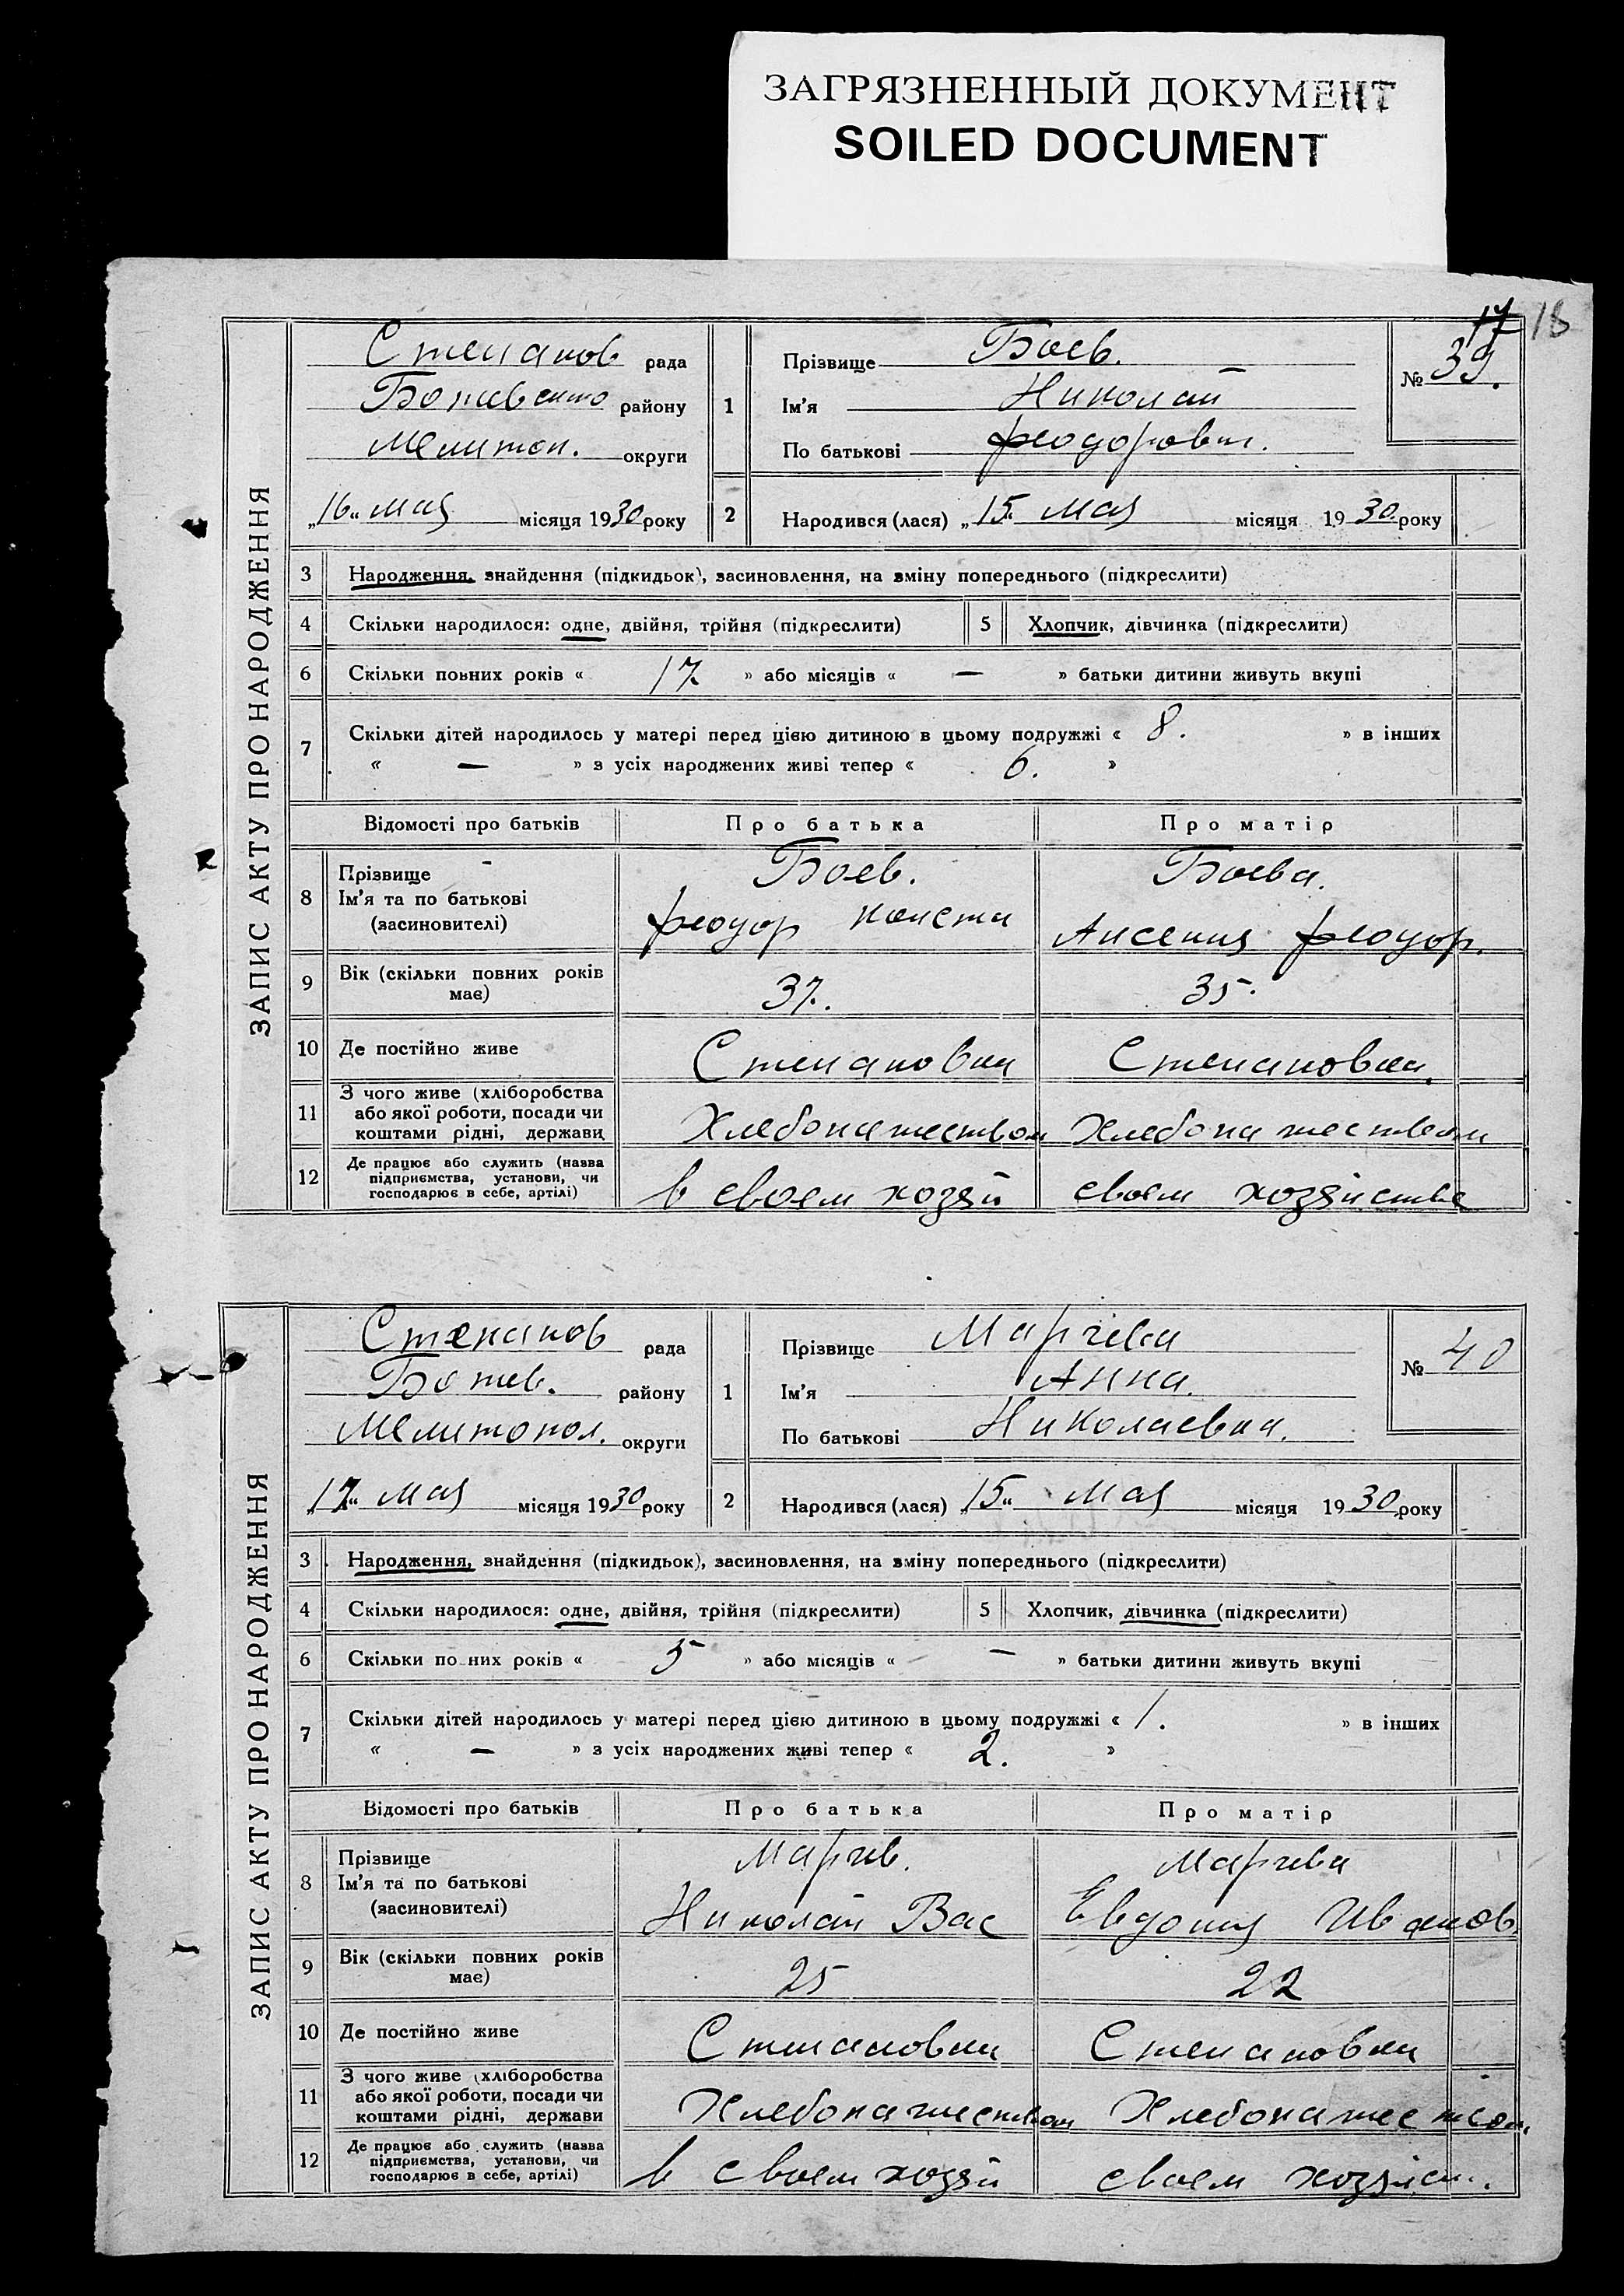 ЗАГРЯЗНЕННЫЙ ДОКУМЕНТ
SOILED DOCUMENT
17 18
ЗАПИС АКТУ ПРО НАРОДЖЕННЯ
Степанов рада
Ботиевского району
Мелитоп. округи
„16“ мая місяця 1930 року
1
Прізвище Боев.
Ім'я Николай
По батькові Феодорович.
№ 39.
2 Народився (лася) „15“ мая місяця 1930 року
3 Народження, знайдення (підкидьок), засиновлення, на зміну попереднього (підкреслити)
4 Скільки народилося: одне, двійня, трійня (підкреслити) 5 Хлопчик, дівчинка (підкреслити)
6 Скільки повних років « 17 » або місяців « — » батьки дитини живуть вкупі
7 Скільки дітей народилось у матері перед цією дитиною в цьому подружжі « 8. » в інших
« — » з усіх народжених живі тепер « 6. »
Відомості про батьків Про батька Про матір
8 Прізвище
Ім'я та по батькові
(засиновителі)
Боев.
Феодор Конста
Боева.
Аксения Феодор.
9 Вік (скільки повних років
має)
37. 35.
10 Де постійно живе Степановки Степановки.
11 З чого живе (хліборобства
або якої роботи, посади чи
коштами рідні, держави
Хлебопашеством Хлебопашеством
12 Де працює або служить (назва
підприємства, установи, чи
господарює в себе, артілі)
в своем хозяй своем хозяйстве
ЗАПИС АКТУ ПРО НАРОДЖЕННЯ
Степанов рада
Ботиев. району
Мелитопол. округи
„17“ мая місяця 1930 року
1
Прізвище Марчева
Ім'я Анна.
По батькові Николаевна.
№ 40
2 Народився (лася) „15“ мая місяця 1930 року
3 Народження, знайдення (підкидьок), засиновлення, на зміну попереднього (підкреслити)
4 Скільки народилося: одне, двійня, трійня (підкреслити) 5 Хлопчик, дівчинка (підкреслити)
6 Скільки по них років « 5 » або місяців « — » батьки дитини живуть вкупі
7 Скільки дітей народилось у матері перед цією дитиною в цьому подружжі « 1. » в інших
« — » з усіх народжених живі тепер « 2. »
Відомості про батьків Про батька Про матір
8 Прізвище
Ім'я та по батькові
(засиновителі)
Марчев.
Николай Вас
Марчева
Евдокия Иванов.
9 Вік (скільки повних років
має)
25 22
10 Де постійно живе Степановки Степановки
11 З чого живе (хліборобства
або якої роботи, посади чи
коштами рідні, держави
Хлебопашеством Хлебопашеством,
12 Де працює або служить (назва
підприємства, установи, чи
господарює в себе, артілі)
в своем хозяй своем хозяйст.